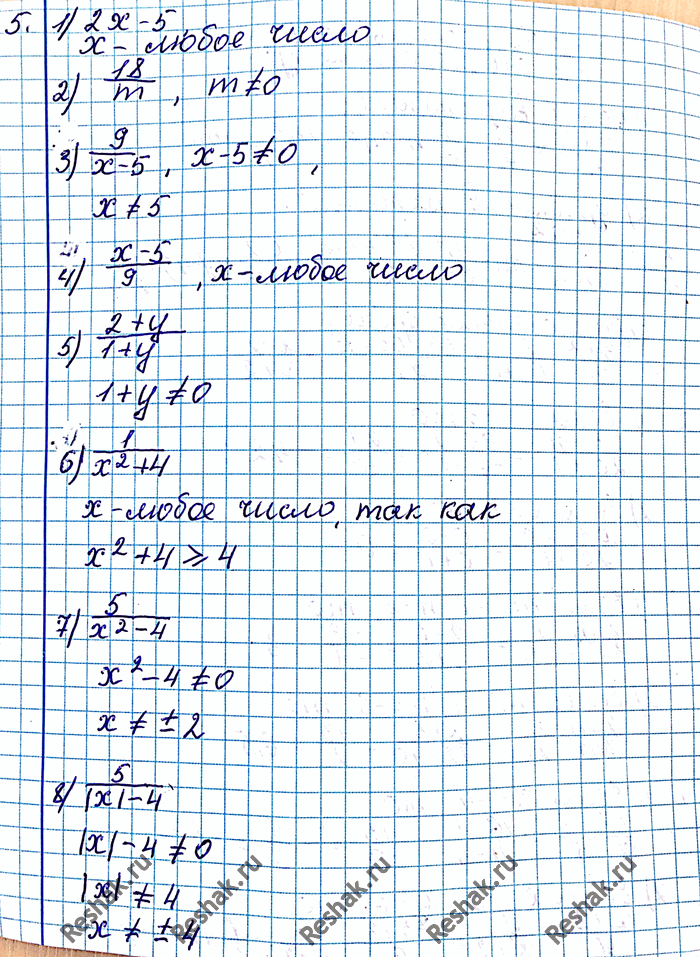 5. 1) 2x-5
x- любое число
2) 18/m , m≠0
3) 9/(x-5) , x-5≠0 ,
x≠5
4) (x-5)/9 , x-любое число
5) (2+y)/(1+y)
1+y≠0
6) 1/(x²+4)
x-любое число, так как
x²+4⩾4
7) 5/(x²-4)
x²-4≠0
x≠±2
8) 5/(|x|-4)
|x|-4≠0
|x|≠4
x≠±4
Reshak.ru Reshak.ru Reshak.ru Reshak.ru Reshak.ru